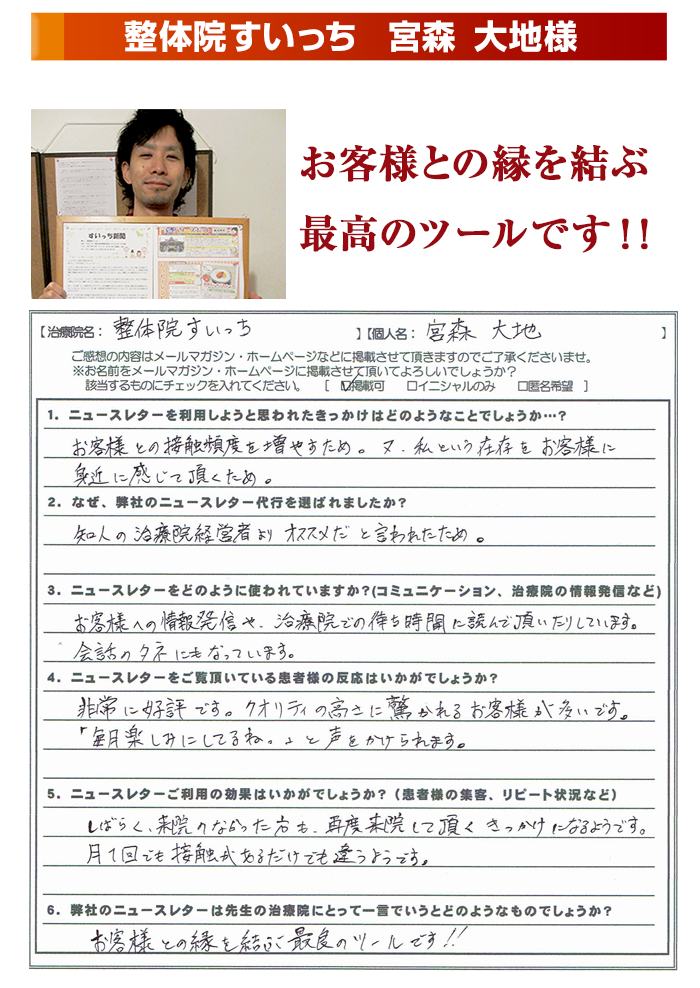 整体院すいっち 宮森 大地様
お客様との縁を結ぶ
最高のツールです!!
すいっち新聞
【治療院名： 整体院すいっち 】【個人名： 宮森 大地 】
ご感想の内容はメールマガジン・ホームページなどに掲載させて頂きますのでご了承くださいませ。
※お名前をメールマガジン・ホームページに掲載させて頂いてよろしいでしょうか？
該当するものにチェックを入れてください。 [ ☑掲載可 □イニシャルのみ □匿名希望 ]
1．ニュースレターを利用しようと思われたきっかけはどのようなことでしょうか…？
お客様との接触頻度を増やすため。又、私という在存をお客様に
身近に感じて頂くため。
2．なぜ、弊社のニュースレター代行を選ばれましたか？
知人の治療院経営者よりオススメだと言われたため。
3．ニュースレターをどのように使われていますか？(コミュニケーション、治療院の情報発信など)
お客様への情報発信や、治療院での待ち時間に読んで頂いたりしています。
会話のタネにもなっています。
4．ニュースレターをご覧頂いている患者様の反応はいかがでしょうか？
非常に好評です。クオリティの高さに驚かれるお客様が多いです。
「毎月楽しみにしてるね。」と声をかけられます。
5．ニュースレターご利用の効果はいかがでしょうか？（患者様の集客、リピート状況など）
しばらく、来院のなかった方も、再度来院して頂くきっかけになるようです。
月1回でも接触があるだけでも違うようです。
6．弊社のニュースレターは先生の治療院にとって一言でいうとどのようなものでしょうか？
お客様との縁を結ぶ最良のツールです!!